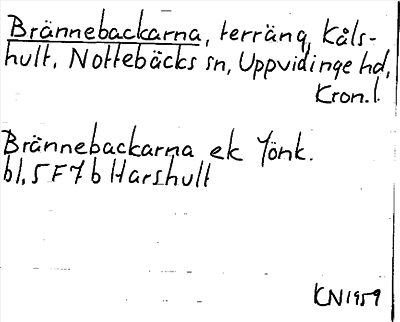 Brännebackarna, terräng, Kåls-
hult, Nottebäcks sn, Uppvidinge hd,
Kron.l.
Brännebackarna ek Jönk.
bl. 5 F 7 b Harshult
KN 1959